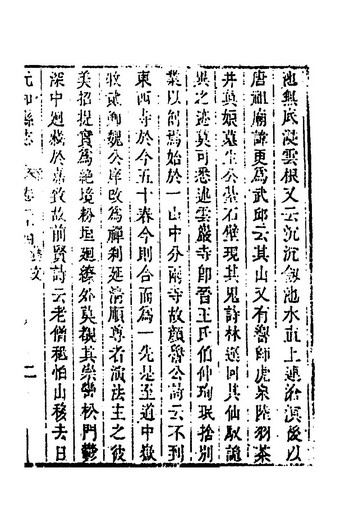 池無底浸雲根又云沉沉劍池水直上連滄溟後以
唐祖廟諱更為武邱云其山又有響師虎泉陸羽茶
井真娘墓生公臺石壁現其鬼詩林逕何其仙馭詭
異之迹莫可悉述雲巖寺即晉王氏伯仲珣珉捨別
業以創焉始於一山中分兩寺故顏魯公詩云不到
東西寺於今五十春今則合而為一先是至道中嶽
牧貳卿魏公庠改為禪刹延清順尊者演法主之彼
美招提實為絶境粉垣迴繚外莫覩其崇巒松門鬱
深中迴藏於嘉致故前賢詩云老僧祗怕山移去日
元和縣志 卷二十四 藝文 二